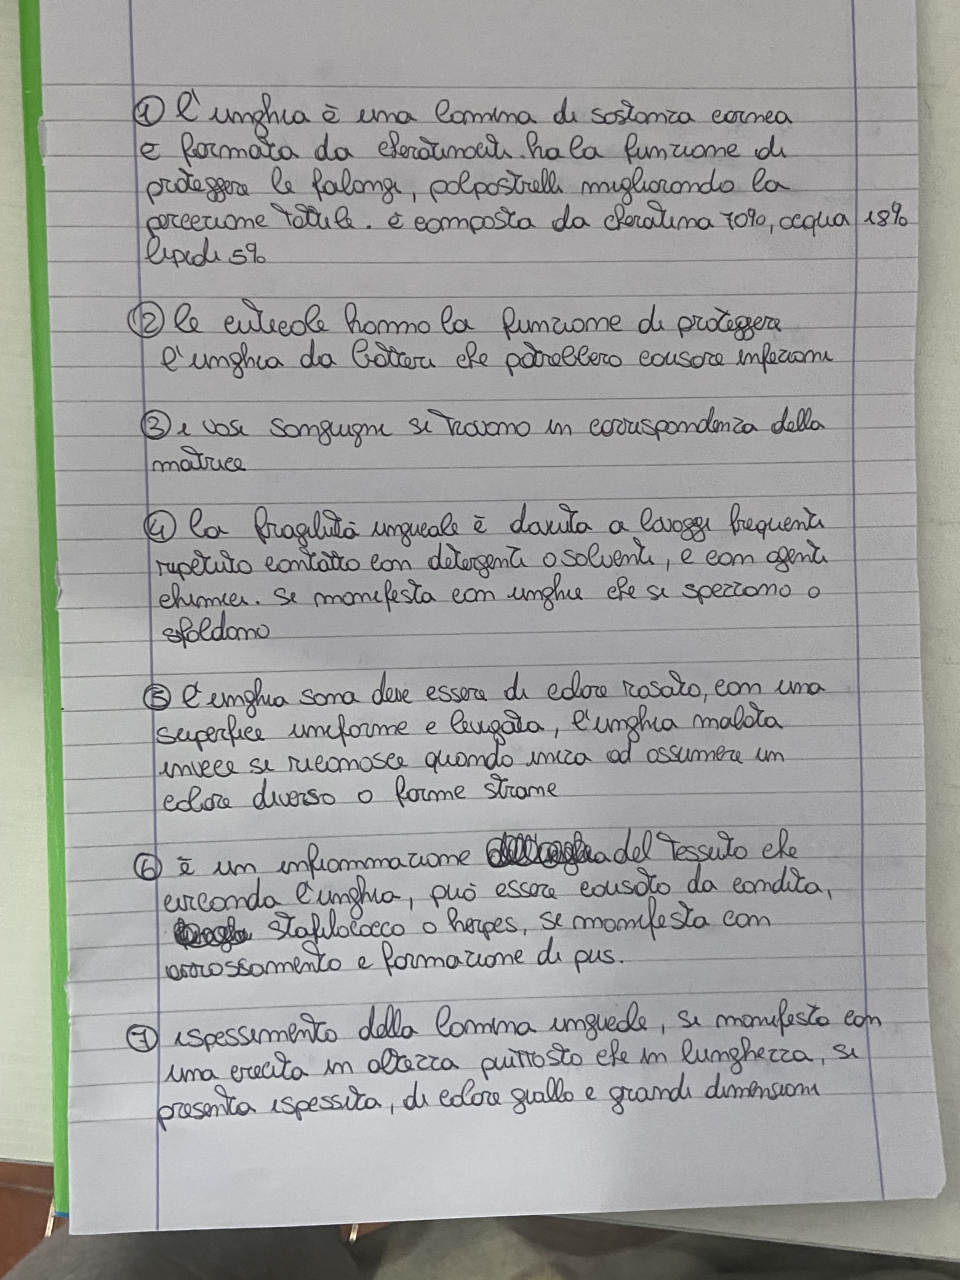 ① l'unghia è una lamina di sostanza cornea
e formata da cheratinociti. ha la funzione di
proteggere le falangi, polpastrelli migliorando la
percezione tattile. è composta da cheratina 70%, acqua 18%
lipidi 5%
② le cuticole hanno la funzione di proteggere
l'unghia da batteri che potrebbero causare infezioni
③ i vasi sanguigni si trovano in corrispondenza della
matrice
④ la fragilità ungueale è dovuta a lavaggi frequenti
ripetuto contatto con detergenti o solventi, e con agenti
chimici. Si manifesta con unghie che si spezzano o
sfaldano
⑤ l'unghia sana deve essere di colore rosato, con una
superficie uniforme e levigata, l'unghia malata
invece si riconosce quando inizia ad assumere un
colore diverso o forme strane
⑥ è un infiammazione del tessuto che
circonda l'unghia, può essere causato da candita,
stafilococco o herpes, si manifesta con
arrossamento e formazione di pus.
⑦ ispessimento della lamina ungueale, si manifesta con
una crecita in altezza piuttosto che in lunghezza, si
presenta ispessita, di colore giallo e grandi dimensioni